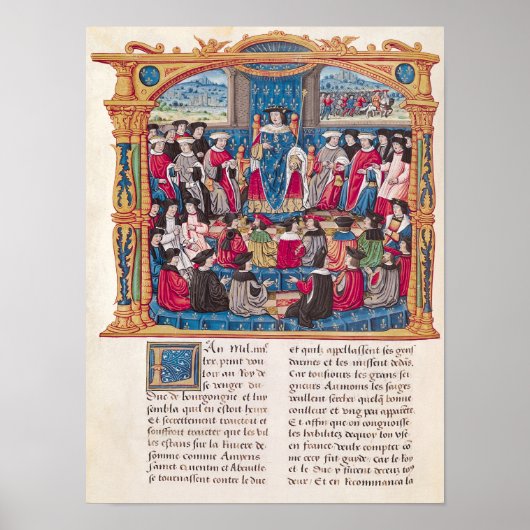 An mil iiiic
lxx, print vou
loir au Roy de
se venger du
Duc de bourgongne et luy
sembla quil en estoit heure
Et secrettement traictoit et
souffroit traicter que les vil
les estans sur la Riviere de
somme comme Amyens
sainct Quentin et Abeville
se tournassent contre le duc
et quilz appellassent ses gens
darmes et les missent dedās.
Car tousiours les grans sei
gneurs Aumoins les saiges
veullent sercher quelq̄ bonne
coulleur et ung peu apparēte.
Et affin que on congnoisse
les habilitez dequoy lon use en
france deulx compter
comme cecy fut guydé car le Roy
et le Duc y furent deceuz tous
deux Et en Recommanca la